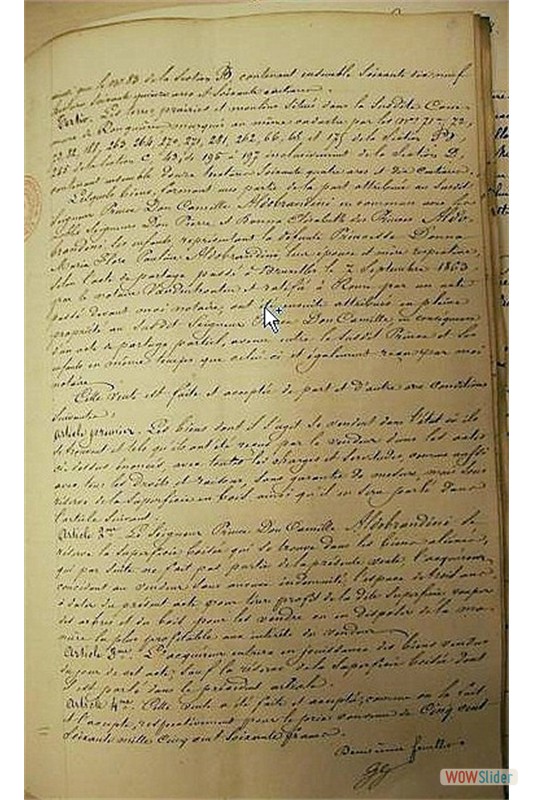 ainsi que le n° 83 de la Section B, contenant ensemble Soixante dix neuf
hectares Soixante quinze ares et Soixante centiares.
Tertio. Les terres, prairies et moulin situé dans la susdite Com-
mune de marqué au même cadastre par les n°s 71 72,
263, 264, 270, 271, 281, 262, 66, 68 et 175 de la Section B,
265 de la Section C, 43, de 195 à 197 inclusivement de la Section D,
contenant ensemble Douze hectares Soixante quatre ares et dix centiares.
Lesquels biens, formant une partie de la part attribuée au susdit
Seigneur Prince Don Camille Aldobrandini en commun avec les
nobles Seigneurs Don Pierre, et Donna Elisabeth des Princes Aldo-
brandini, ses enfants représentant la défunte Princesse Donna
Maria Flore Pauline Aldobrandini, leur épouse et mère respective,
selon l'acte de partage passé à Bruxelles le 2 Septembre 1863
par le notaire et ratifié à Rome par un acte
passé devant moi notaire, ont été ensuite attribués en pleine
propriété au susdit Seigneur Prince Don Camille, en conséquence
d'un acte de partage partiel, avenu entre le susdit Prince et ses
enfants en même temps que celui ci et également reçu par moi
notaire.
Cette vente est faite et acceptée de part et d'autre aux conditions
suivantes:
Article premier. Les biens dont il s'agit se vendent dans l'état où ils
se trouvent et tels qu'ils ont été reçus par le vendeur dans les actes
ci dessus énoncés, avec toutes les charges et servitudes, comme aussi
avec tous les droits et raisons, sans garantie de mesure, mais sous
réserve de la Superficie en bois ainsi qu'il en sera parlé dans
l'article suivant.
Article 2me. Le Seigneur Prince Don Camille Aldobrandini se
réserve la Superficie boisée qui se trouve dans les biens aliénés,
qui par suite ne fait pas partie de la présente vente, l'acquéreur
concédant au vendeur sans aucune indemnité, l'espace de trois ans
à dater du présent acte pour tirer profit de la dite Superficie, couper
des arbres et du bois pour les vendre ou en disposer de la ma-
nière la plus profitable aux intérêts du vendeur.
Article 3me. L'acquéreur entrera en jouissance des biens vendus
du jour de cet acte, sauf la réserve de la Superficie boisée dont
il est parlé dans le précédent article.
Article 4me. Cette vente a été faite et acceptée, comme on la fait
et l'accepte, respectivement pour le prix convenu de Cinq cent
soixante mille Cinq cent Soixante francs.
Deuxième feuille.
WOWSlider